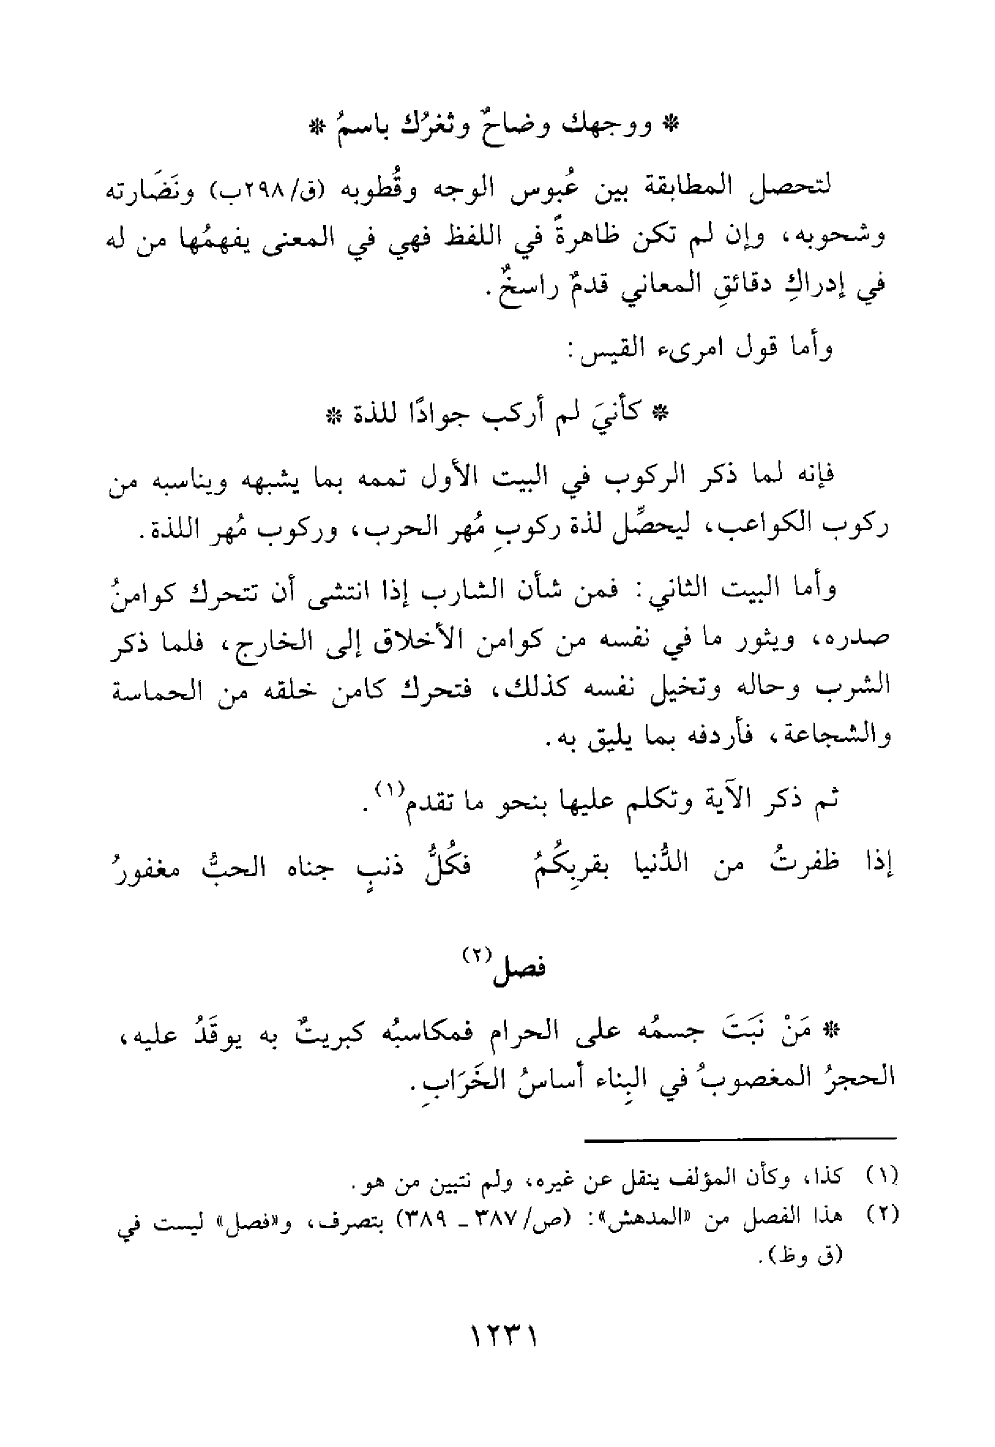 * ووجهك وضاحٌ وثغرُك باسمُ *
لتحصل المطابقة بين عُبوس الوجه وقُطوبه (ق/٢٩٨ب) ونَضَارته
وشحوبه، وإن لم تكن ظاهرةً في اللفظ فهي في المعنى يفهمُها من له
في إدراكِ دقائقِ المعاني قدمٌ راسخٌ.
وأما قول امرىء القيس:
* كأنيَ لم أركب جوادًا للذة *
فإنه لما ذكر الركوب في البيت الأول تممه بما يشبهه ويناسبه من
ركوب الكواعب، ليحصِّل لذة ركوبِ مُهر الحرب، وركوب مُهر اللذة.
وأما البيت الثاني: فمن شأن الشارب إذا انتشى أن تتحرك كوامنُ
صدره، ويثور ما في نفسه من كوامن الأخلاق إلى الخارج، فلما ذكر
الشرب وحاله وتخيل نفسه كذلك، فتحرك كامن خلقه من الحماسة
والشجاعة، فأردفه بما يليق به.
ثم ذكر الآية وتكلم عليها بنحو ما تقدم(١).
إذا ظفرتُ من الدُّنيا بقربِكُمُ فكُلُّ ذنبٍ جناه الحبُّ مغفورُ
فصل(٢)
* مَنْ نَبَتَ جسمُه على الحرام فمكاسبُه كبريتٌ به يوقَدُ عليه،
الحجرُ المغصوبُ في البِناء أساسُ الخَرَابِ.
(١) كذا، وكأن المؤلف ينقل عن غيره، ولم نتبين من هو.
(٢) هذا الفصل من «المدهش»: (ص/٣٨٧ ـ ٣٨٩) بتصرف، و«فصل» ليست في
(ق وظ).
١٢٣١